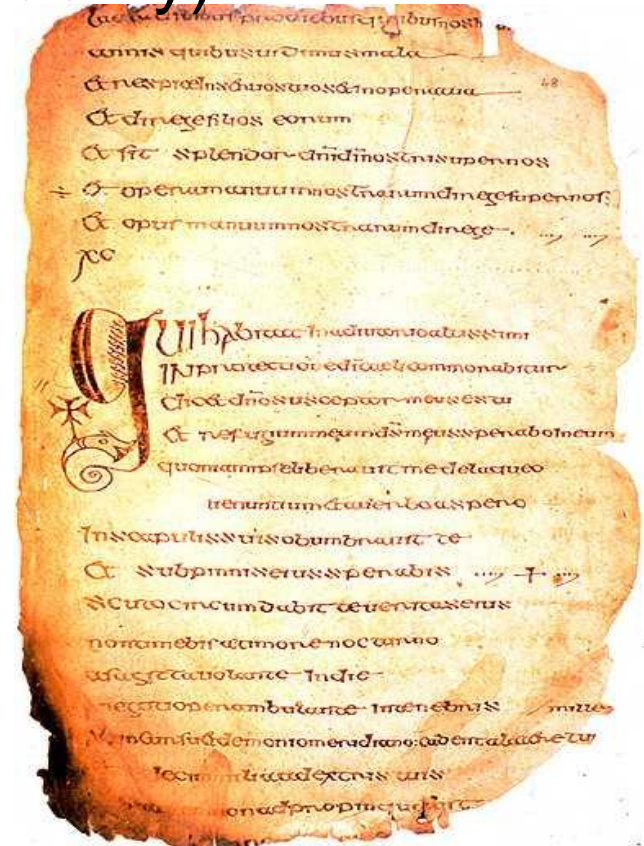 y)
pro diebus quibus nos
annis quibus uidimus mala
Et respice in seruos tuos & in opera tua 48
Et dirige filios eorum
Et sit splendor dn̄i dī nostri super nos
÷ Et opera manuum nostrarum dirige super nos:
Et opus manuum nostrarum dirige
xc
Qui habitat in adiutorio altissimi
IN protectione dī caeli commorabitur
Dicet dn̄o susceptor meus es tu
Et refugium meum ds̄ meus sperabo in eum
quoniam ipse liberauit me de laqueo
uenantium & a uerbo aspero
In scapulis suis obumbrauit te
Et sub pinnis eius sperabis
scuto circumdabit te ueritas eius
non timebis a timore nocturno
a sagitta uolante In die
perambulante In tenebris / mille
demonio meridiano: cadent a latere tuo
milia a dextris tuis
non adpropinquabit